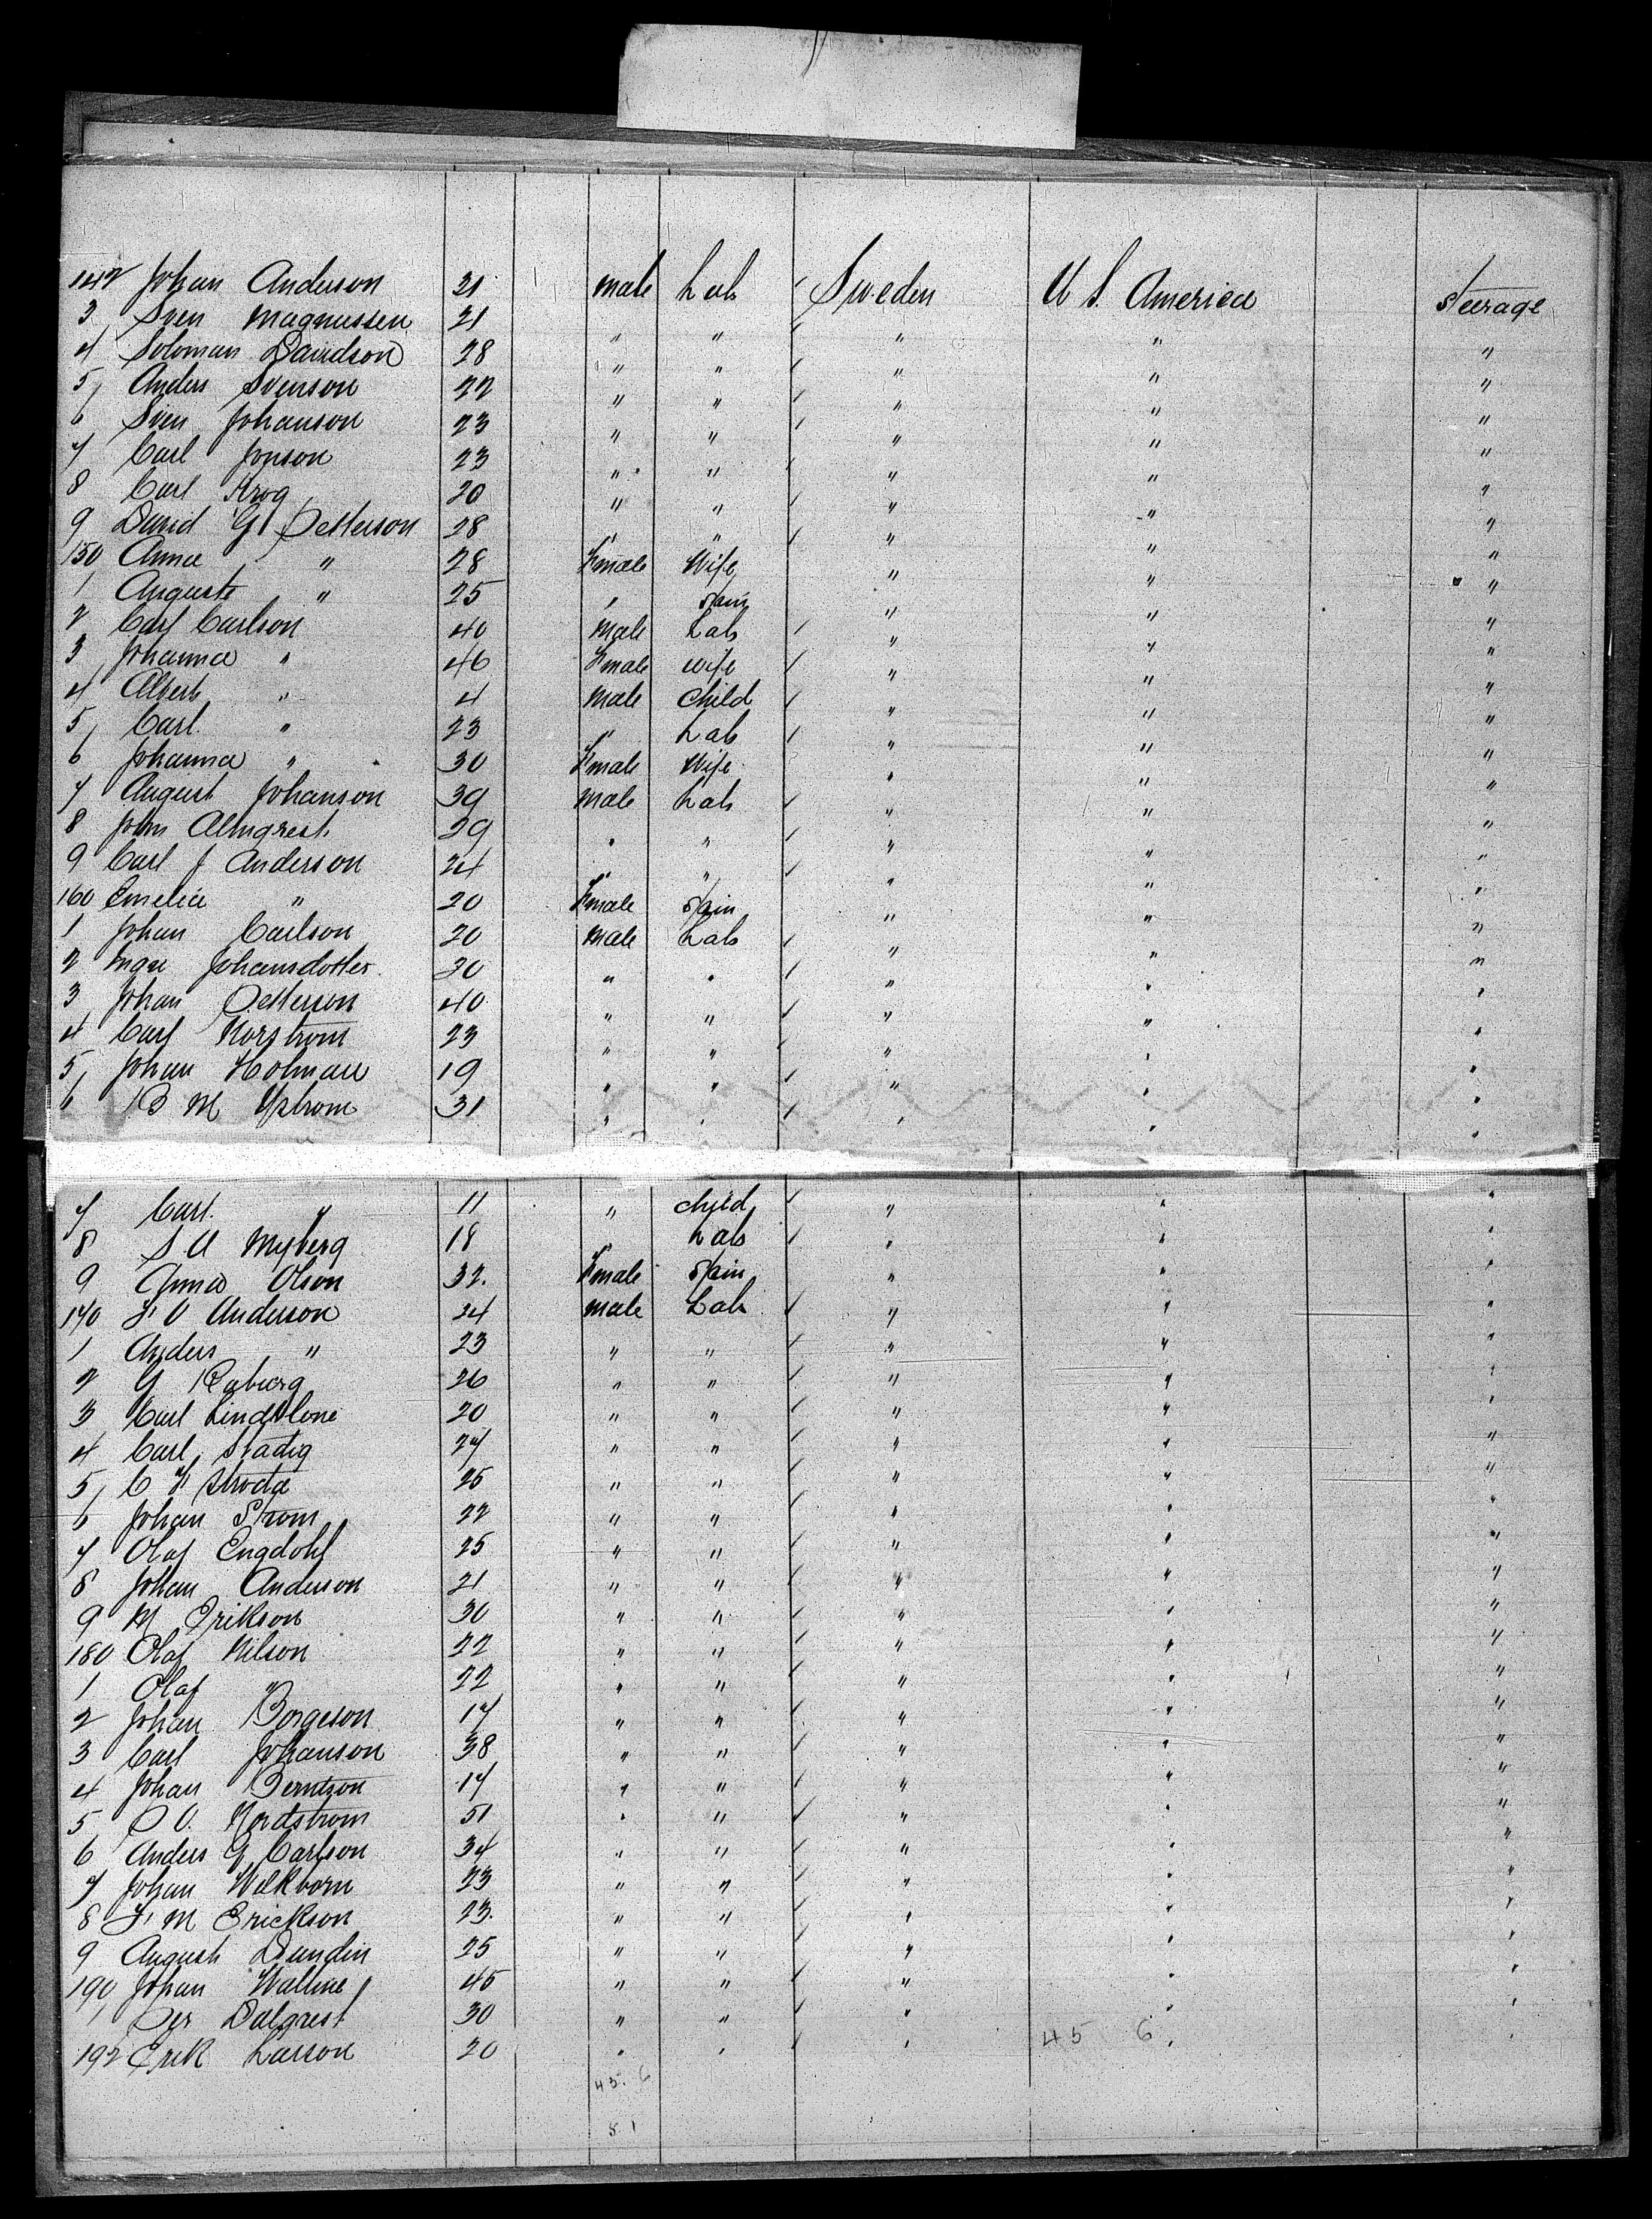 142 Johan Anderson 21 male Lab Sweden U S. America Steerage
3 Sven Magnussen 21 " " " " "
4 Soloman Davidson 28 " " " " "
5 Anders Svenson 22 " " " " "
6 Sven Johanson 23 " " " " "
7 Carl Jonson 23 " " " " "
8 Carl Krog 20 " " " " "
9 David G Petterson 28 " " " " "
150 Anna " 28 Fmale Wife " " "
1 Auguste " 25 " Spin " " "
2 Carl Carlson 40 Male Lab " " "
3 Johanna " 46 Fmale wife " " "
4 Albert " 4 Male Child " " "
5 Carl " 23 " Lab " " "
6 Johanna " 30 Fmale Wife " " "
7 August Johanson 39 Male Lab " " "
8 John Almgrest 29 " " " " "
9 Carl J Anderson 24 " " " " "
160 Emelia " 20 Fmale Spin " " "
1 Johan Carlson 20 Male Lab " " "
2 Johansdotter 20 " " " " "
3 Johan Petterson 40 " " " " "
4 Carl Norstrom 23 " " " " "
5 Johan Holman 19 " " " " "
6 B M 31 " " " " "
7 Carl " 11 " child " " "
8 S A Myberg 18 " Lab " " "
9 Anna Olson 32. Fmale Spin " " "
170 F O Anderson 24 male Lab " " "
1 Anders " 23 " " " " "
2 G 26 " " " " "
3 Carl 20 " " " " "
4 Carl Stadig 27 " " " " "
5 C F 25 " " " " "
6 Johan Strom 22 " " " " "
7 Olaf Engdohl 25 " " " " "
8 Johan Anderson 21 " " " " "
9 M Erikson 30 " " " " "
180 Olaf Nilson 22 " " " " "
1 Olaf " 22 " " " " "
2 Johan Borgeson 17 " " " " "
3 Carl Johanson 38 " " " " "
4 Johan Berntzon 17 " " " " "
5 P O. Nordstrom 51 " " " " "
6 Anders G Carlson 34 " " " " "
7 Johan Welkborn 23 " " " " "
8 F M Erickson 23. " " " " "
9 August Dundin 25 " " " " "
190 Johan Walline 45 " " " " "
1 Per Dalgrest 30 " " " " "
192 Erik Larson 20 " " " " "
45 6
45. 6
81